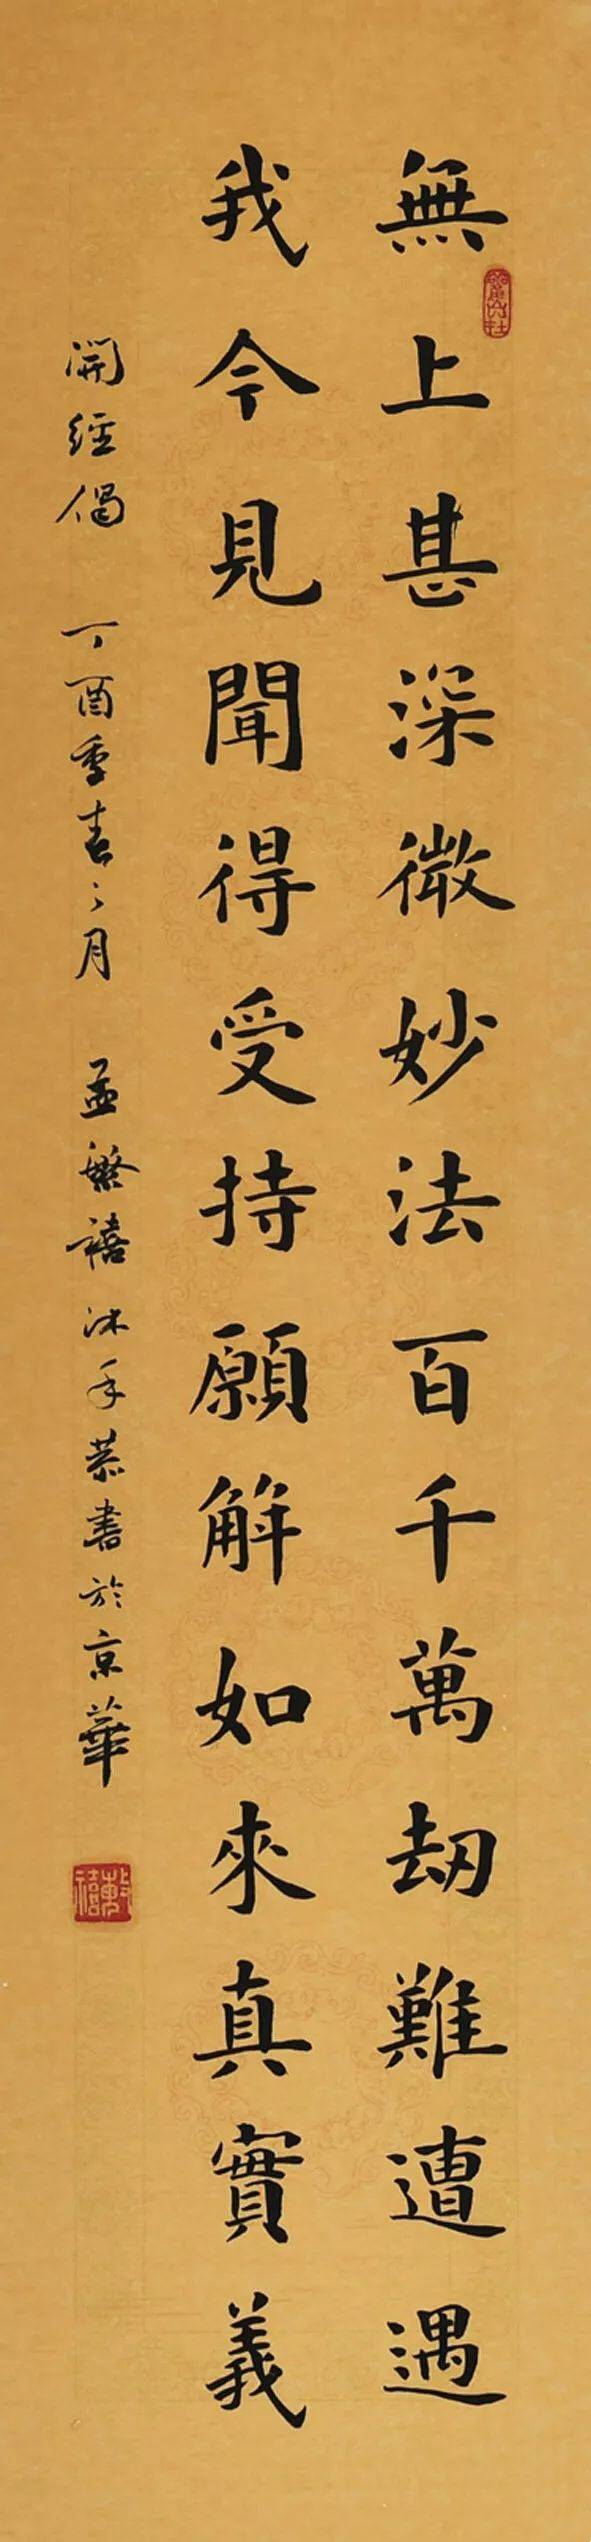 無上甚深微妙法百千萬劫難遭遇
我今見聞得受持願解如來真實義
開經偈 丁酉季春之月 孟繁禧沐手恭書於京華